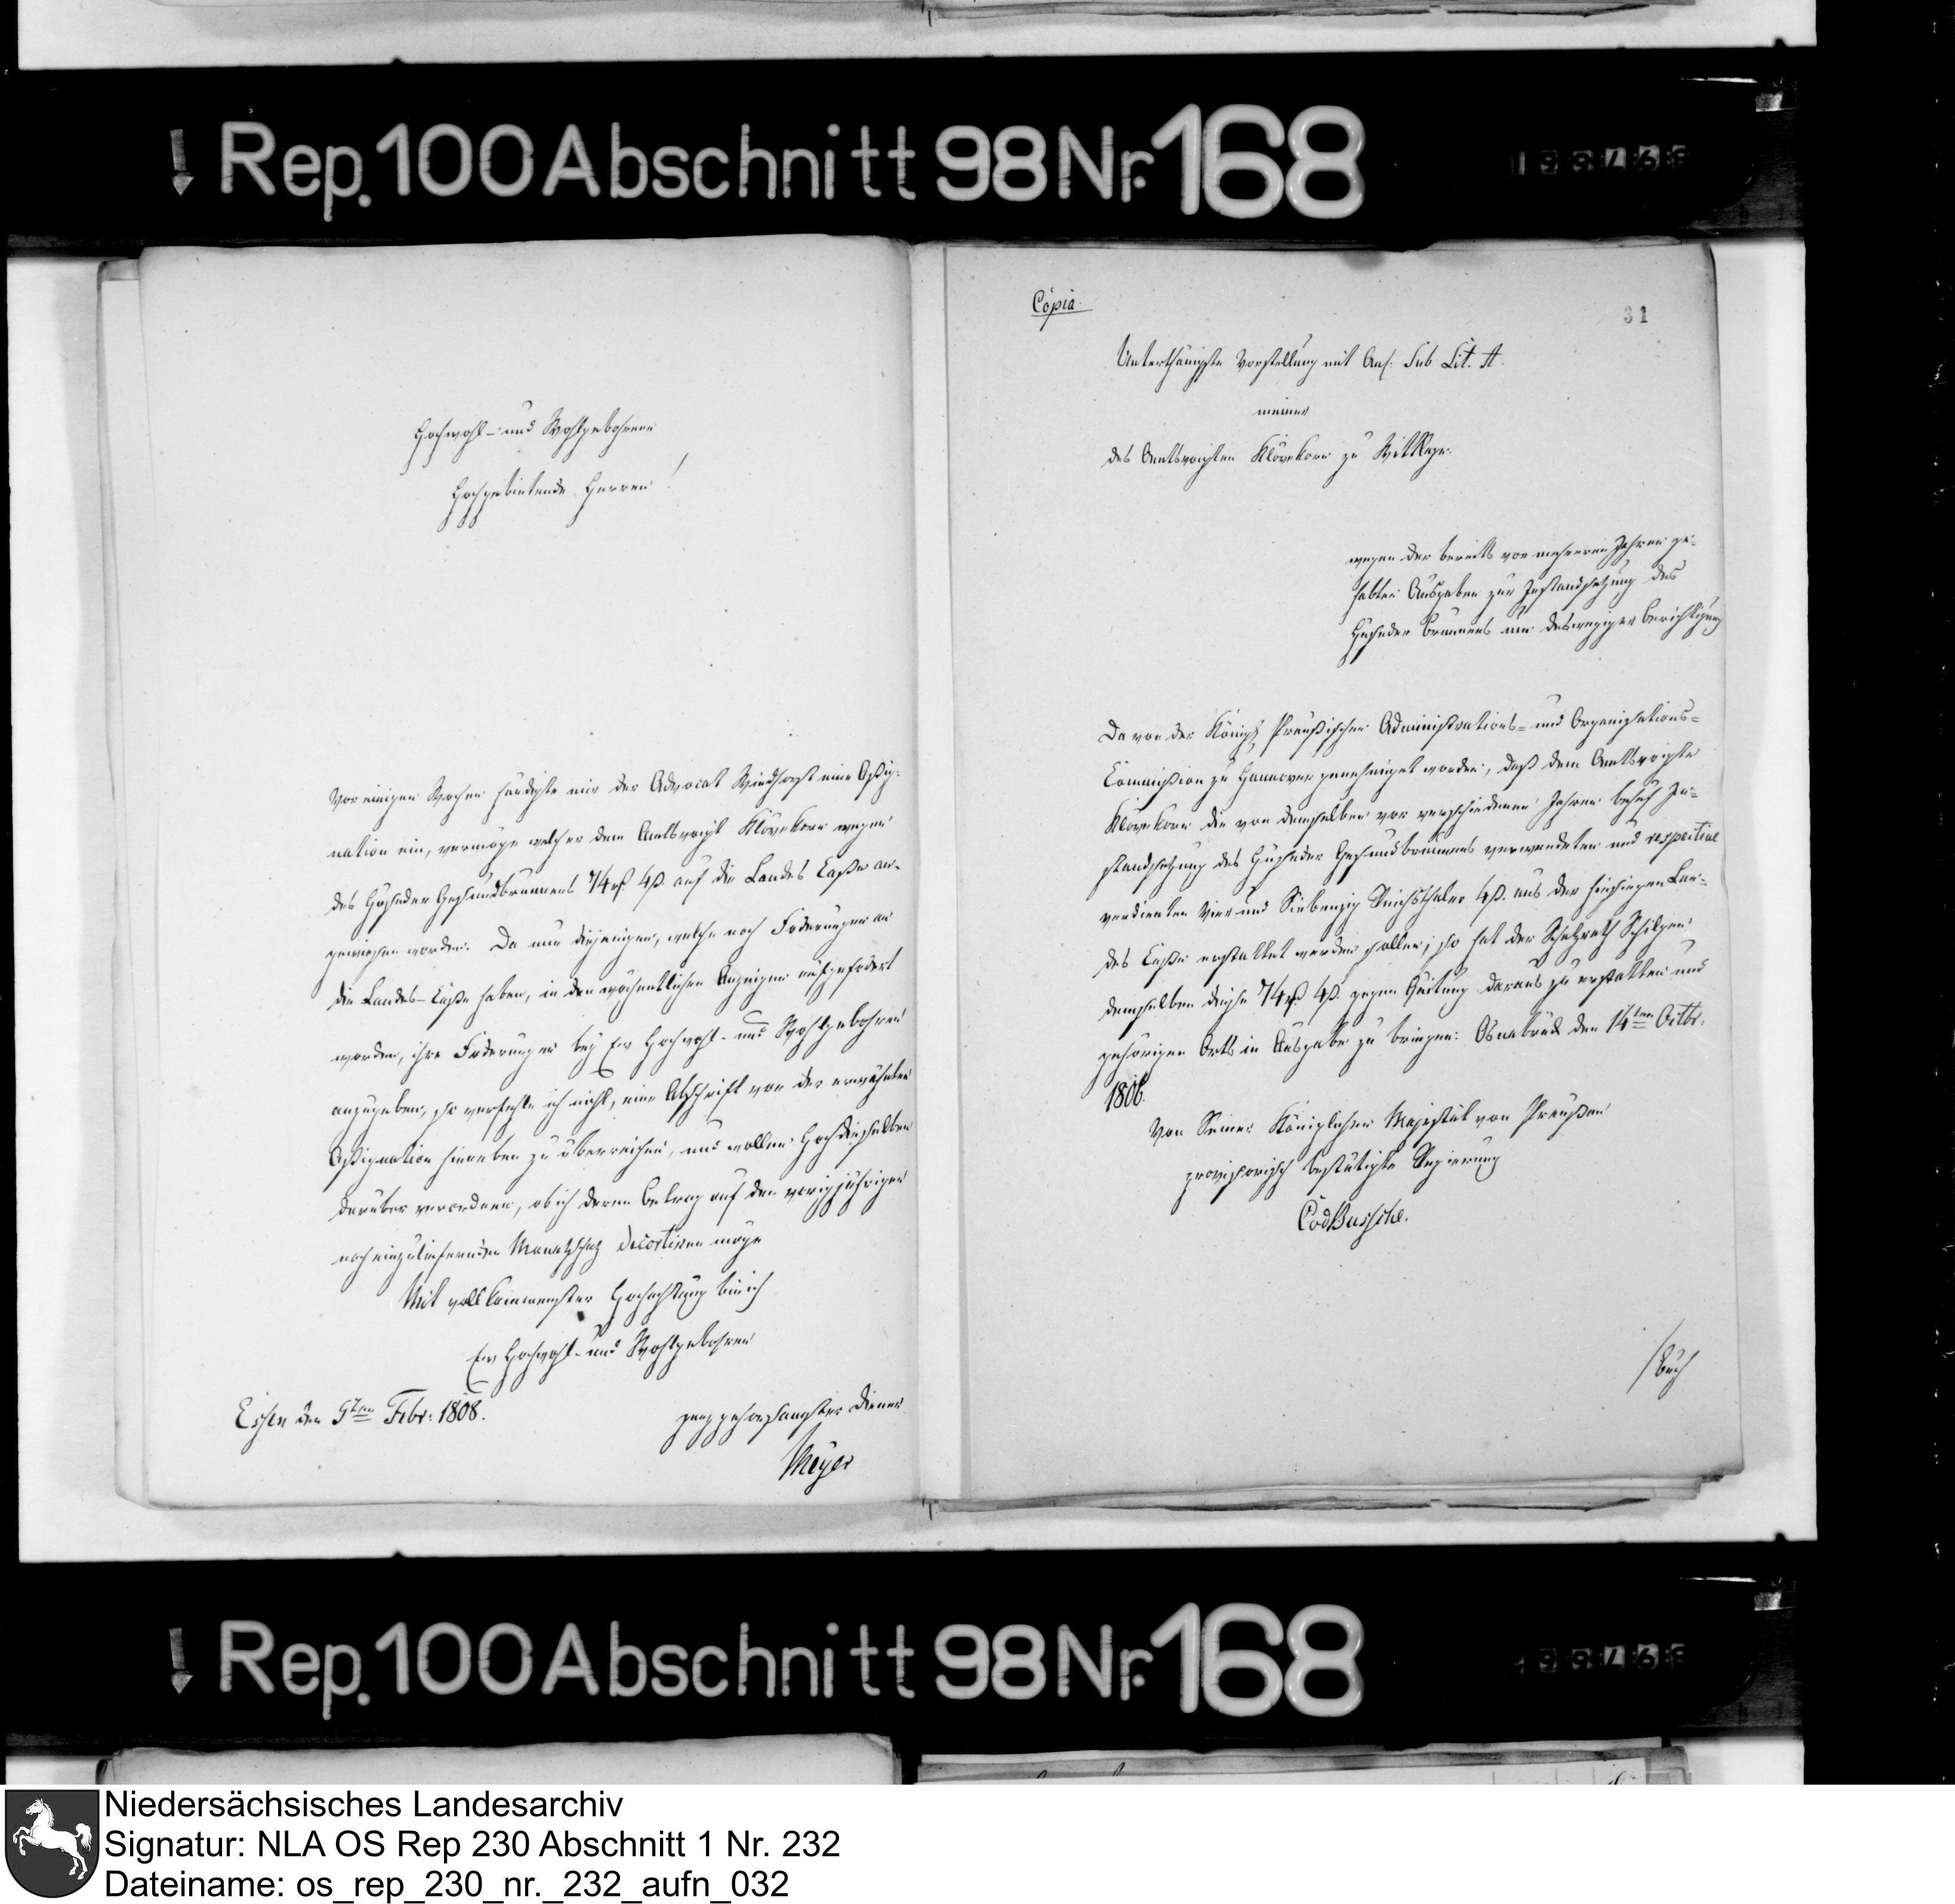 Rep. 100 Abschnitt 98 Nr. 168
Hochwohl- und Wohlgebohrene
Hochgebietende Herren!
Vor einigen Wochen händigte mir der Advocat Windhorst eine Aßig-
nation ein, vermöge welcher dem Amtsvoigt Klövekorn wegen
des Hüseder Gesundbrunnens 74 rß. 4 ß. auf die Landes Casse an-
gewiesen worden. Da nun diejenigen, welche noch Foderungen an
die Landes-Casse haben, in den wöchentlichen Anzeigen aufgefodert
worden, ihre Foderungen bey Ew Hochwohl- und Wohlgebohren
anzugeben, so verfehle ich nicht, eine Abschrift von der erwähnten
Aßignation hieneben zu überreichen, und wollen Hochdieselben
darüber verordnen, ob ich deren Betrag auf den vorigjährigen
noch einzuliefernden Monatschatz decortiren möge
Mit vollkommenster Hochachtung bin ich
Ew Hochwohl- und Wohlgebohren
Essen den 9ten Febr: 1808.
ganz gehorsamster Diener
Meyer
Copia
31
Unterthänigste Vorstellung mit Anl. Sub Lit. A.
meiner
des Amtsvoigten Klövekorn zu Wittlage.
wegen der bereits vor mehreren Jahren ge-
habten Ausgaben zur Instandsetzung des
Hüseder Brunnens um deswegiger Berichtigung
Da von der Königl. Preußischen Administrations- und Organisations-
Commission zu Hannover genehmiget worden, daß dem Amtsvoigte
Klövekorn die von demselben vor verschiedenen Jahren behuf In-
standsetzung des Hüseder Gesundbrunnens verwendeten und respective
verdienten Vier und Siebenzig Reichsthaler 4 ß. aus der hiesigen Lan-
des Casse erstattet werden sollen; so hat der Schatzrath Schilgen
demselben diese 74 rß 4 ß. gegen Quitung daraus zu erstatten und
gehörigen Orts in Ausgabe zu bringen: Osnabrück den 14ten Octbr.
1806.
Von Seiner Königlichen Majestät von Preußen
provisorisch bestätigte Regierung
CvdBussche.
Rep. 100 Abschnitt 98 Nr. 168
Niedersächsisches Landesarchiv
Signatur: NLA OS Rep 230 Abschnitt 1 Nr. 232
Dateiname: os_rep_230_nr._232_aufn_032